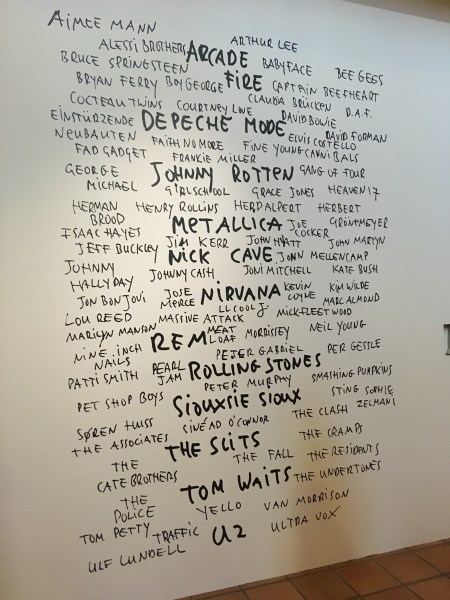 AIMEE MANN
ALESSI BROTHERS ARCADE FIRE ARTHUR LEE
BRUCE SPRINGSTEEN BABYFACE BEE GEES
BRYAN FERRY BOY GEORGE CAPTAIN BEEFHEART
COCTEAU TWINS COURTNEY LOVE CLAUDIA BRÜCKEN D.A.F.
EINSTÜRZENDE NEUBAUTEN DEPECHE MODE DAVID BOWIE DAVID FORMAN
FAITH NO MORE ELVIS COSTELLO
FAD GADGET FRANKIE MILLER FINE YOUNG CANNIBALS
GEORGE MICHAEL JOHNNY ROTTEN GANG OF FOUR
GIRLSCHOOL GRACE JONES HEAVEN 17
HERMAN BROOD HENRY ROLLINS HERB ALPERT HERBERT GRÖNEMEYER
ISAAC HAYES METALLICA JOE COCKER
JEFF BUCKLEY JIM KERR JOHN HIATT JOHN MARTYN
JOHNNY HALLYDAY NICK CAVE JOHN MELLENCAMP
JOHNNY CASH JONI MITCHELL KATE BUSH
JON BON JOVI JOSE MERCE NIRVANA KEVIN COYNE KIM WILDE
LOU REED LL COOL J MARC ALMOND
MARILYN MANSON MASSIVE ATTACK MICK FLEETWOOD
NINE INCH NAILS REM MEAT LOAF MORRISSEY NEIL YOUNG
PETER GABRIEL PER GESSLE
PATTI SMITH PEARL JAM ROLLING STONES
PET SHOP BOYS PETER MURPHY SMASHING PUMPKINS
SIOUXSIE SIOUX STING SOPHIE ZELMANI
SØREN HUSS SINÉAD O'CONNOR THE CLASH
THE ASSOCIATES THE SLITS THE CRAMPS
THE CATE BROTHERS THE FALL THE RESIDENTS
TOM WAITS THE UNDERTONES
THE POLICE YELLO VAN MORRISON
TOM PETTY TRAFFIC U2 ULTRA VOX
ULF LUNDELL